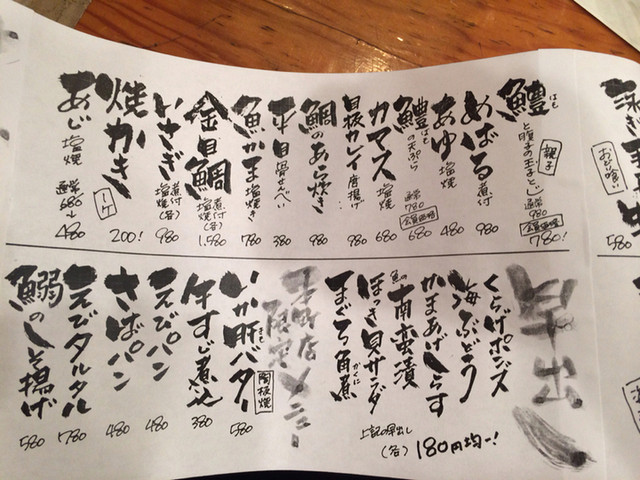 鱧 はも と脛子の玉子とじ 親子 通常 980 会員価格 780!
めばる 煮付 980
あゆ 塩焼 480
鱧 はも の天ぷら 通常 780 会員価格 680
カマス 塩焼 680
目板カレイ 唐揚げ 980
鯛のあら炊き 980
平目 骨せんべい 380
魚かま 塩焼き 780
金目鯛 煮付 塩焼(各) 1,580
いさぎ 煮付 塩焼(各) 980
焼かき 一ケ 200!
あじ 塩焼 通常 680→480
早出し
くらげポンズ
海ぶどう
かまあげしらす
魚の南蛮漬
ほっき貝サラダ
まぐろ角煮 かくに
上記の早出し(各) 180円均一!
本町店限定メニュー
いか肝バター きも 陶板焼 580
牛すじ煮込 380
えびパン 480
さばパン 480
えびタルタル 780
鰯のしそ揚げ 580
おどり喰い
580